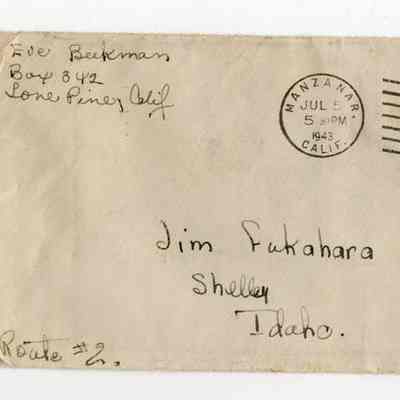 Eve Beekman
Box 342
Lone Pine, Calif
MANZANAR.
JUL 5
5 PM
1943
CALIF.
Jim Fukahara
Shelley
Idaho.
Route #2.